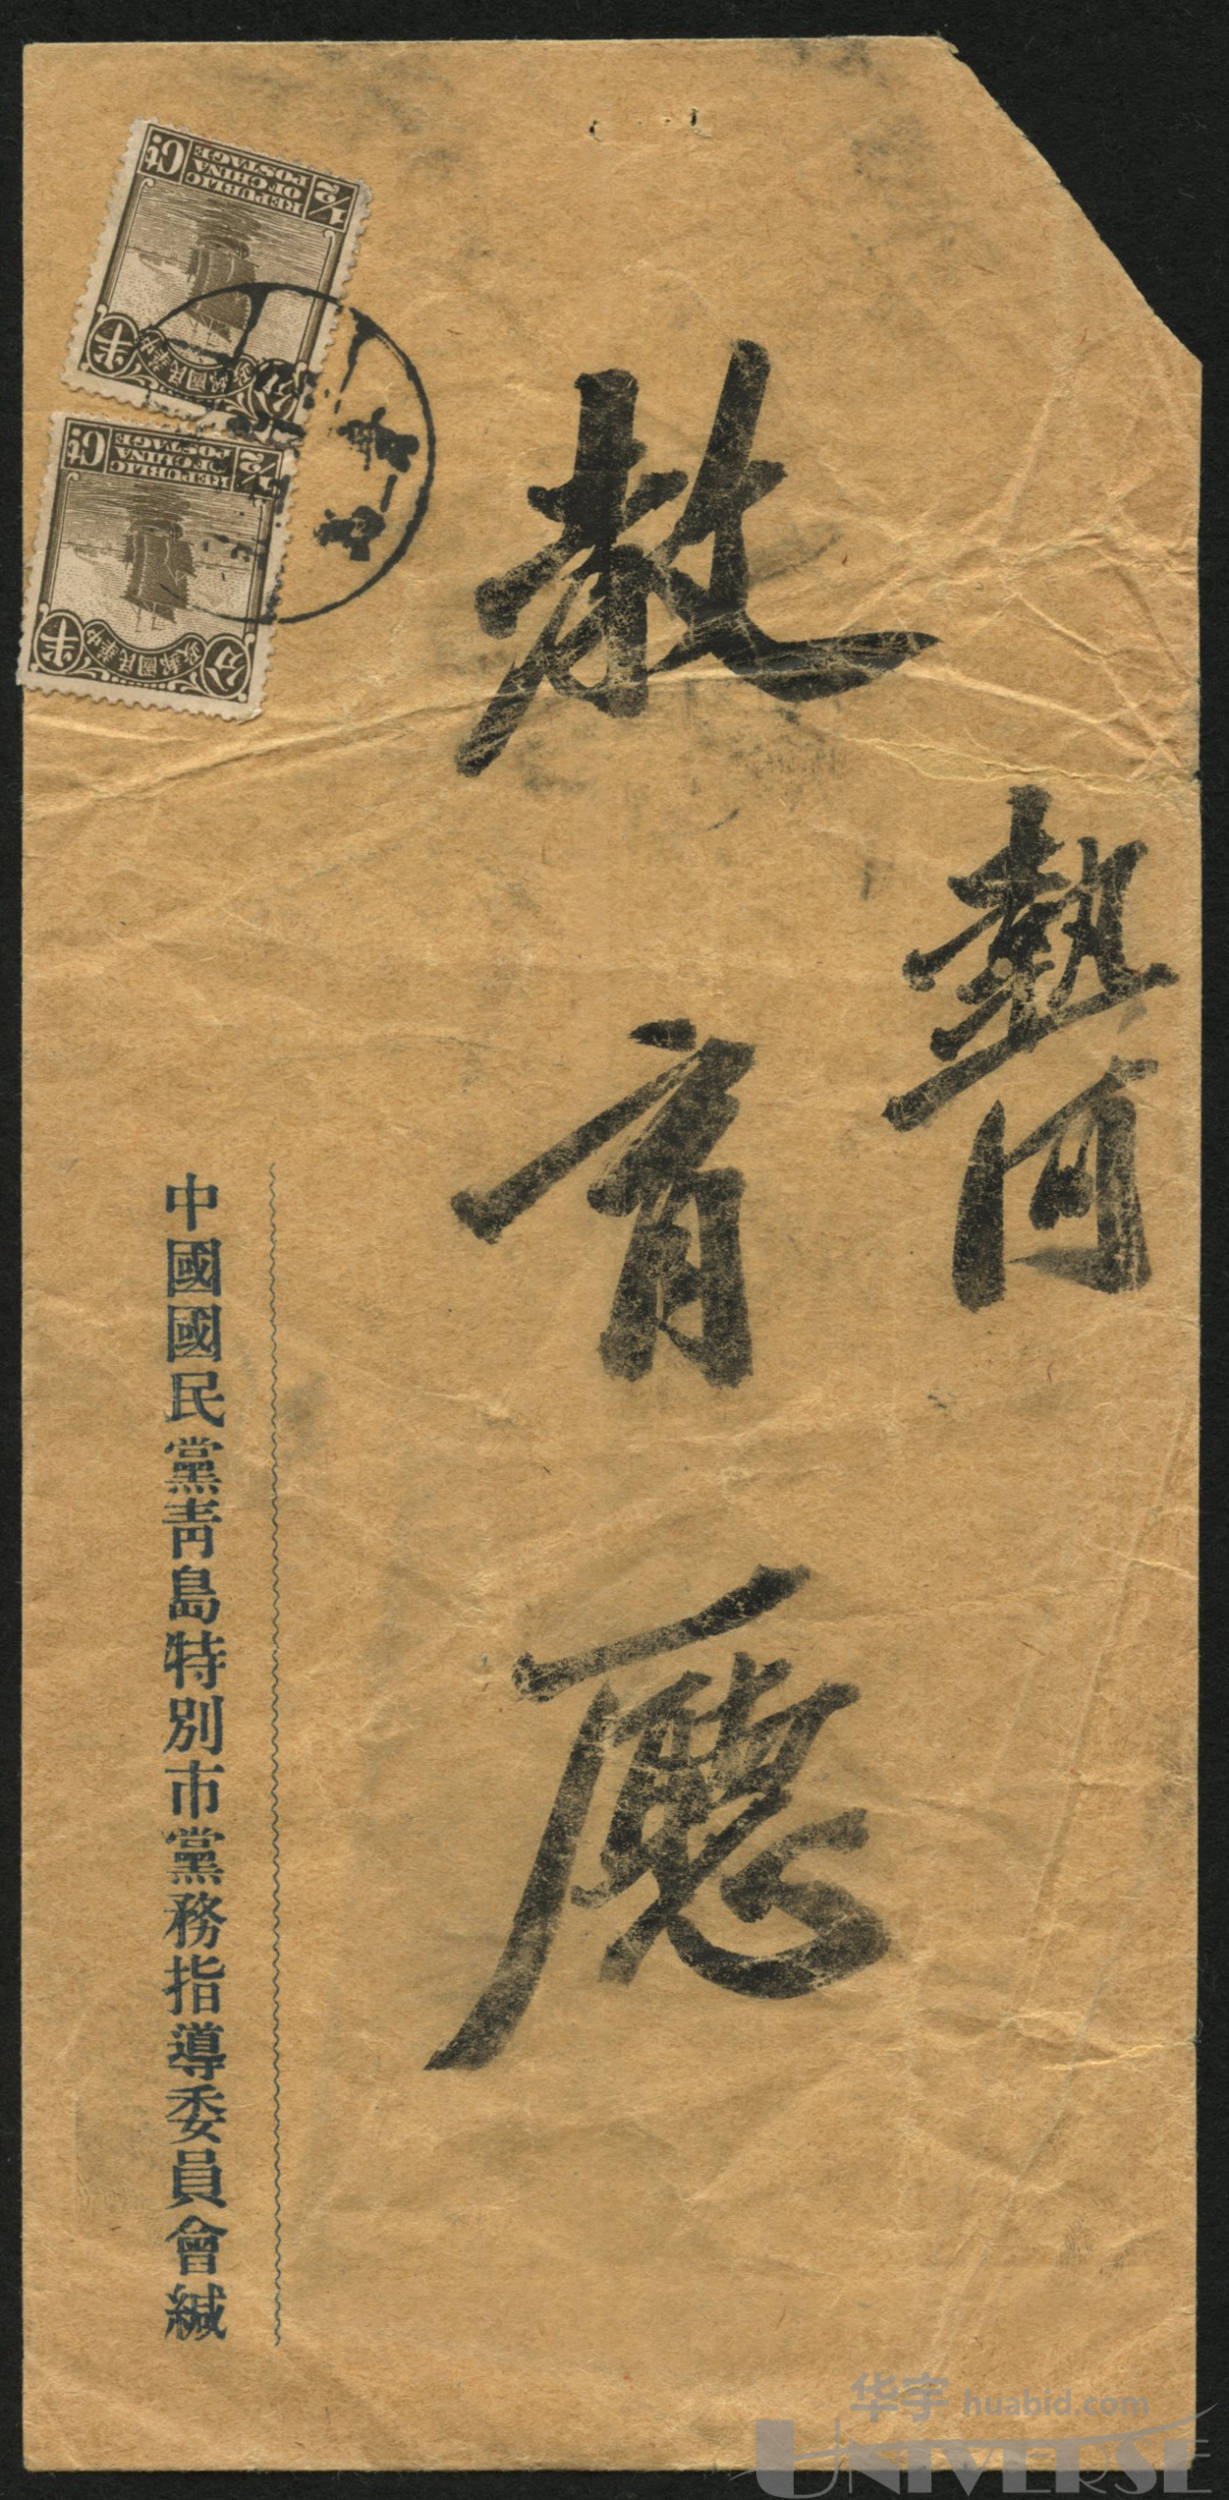 熱河
教育廳
中國國民黨青島特別市黨務指導委員會緘
REPUBLIC
OF CHINA
POSTAGE
1/2 Ct.
中華民國郵政
半 分
REPUBLIC
OF CHINA
POSTAGE
1/2 Ct.
中華民國郵政
半 分
華宇 huabid.com
UNIVERSE